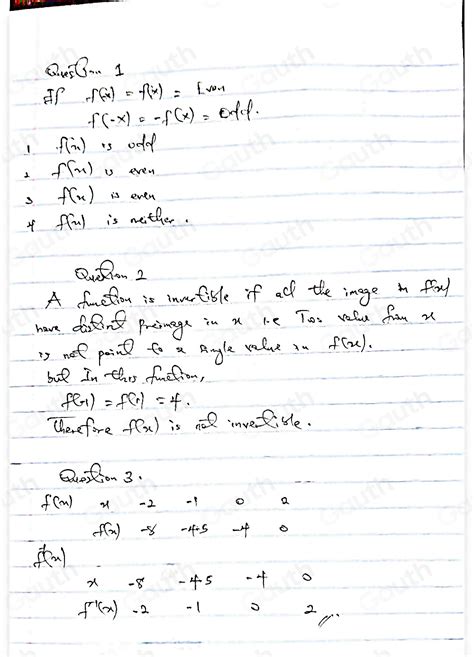 Question 1
If f(x) = f(x) = Even
f(-x) = -f(x) = odd.
1 f(x) is odd
2 f(x) is even
3 f(x) is even
4 f(x) is neither.
Question 2
A function is invertible if all the image in f(x)
have distinct preimage in x i.e Two value from x
is not point to a single value in f(x).
but In this function,
f(-1) = f(1) = 4.
Therefore f(x) is not invertible.
Question 3.
f(x) x -2 -1 0 2
f(x) -8 -4.5 -4 0
f⁻¹(x)
x -8 -4.5 -4 0
f⁻¹(x) -2 -1 0 2
Gauth